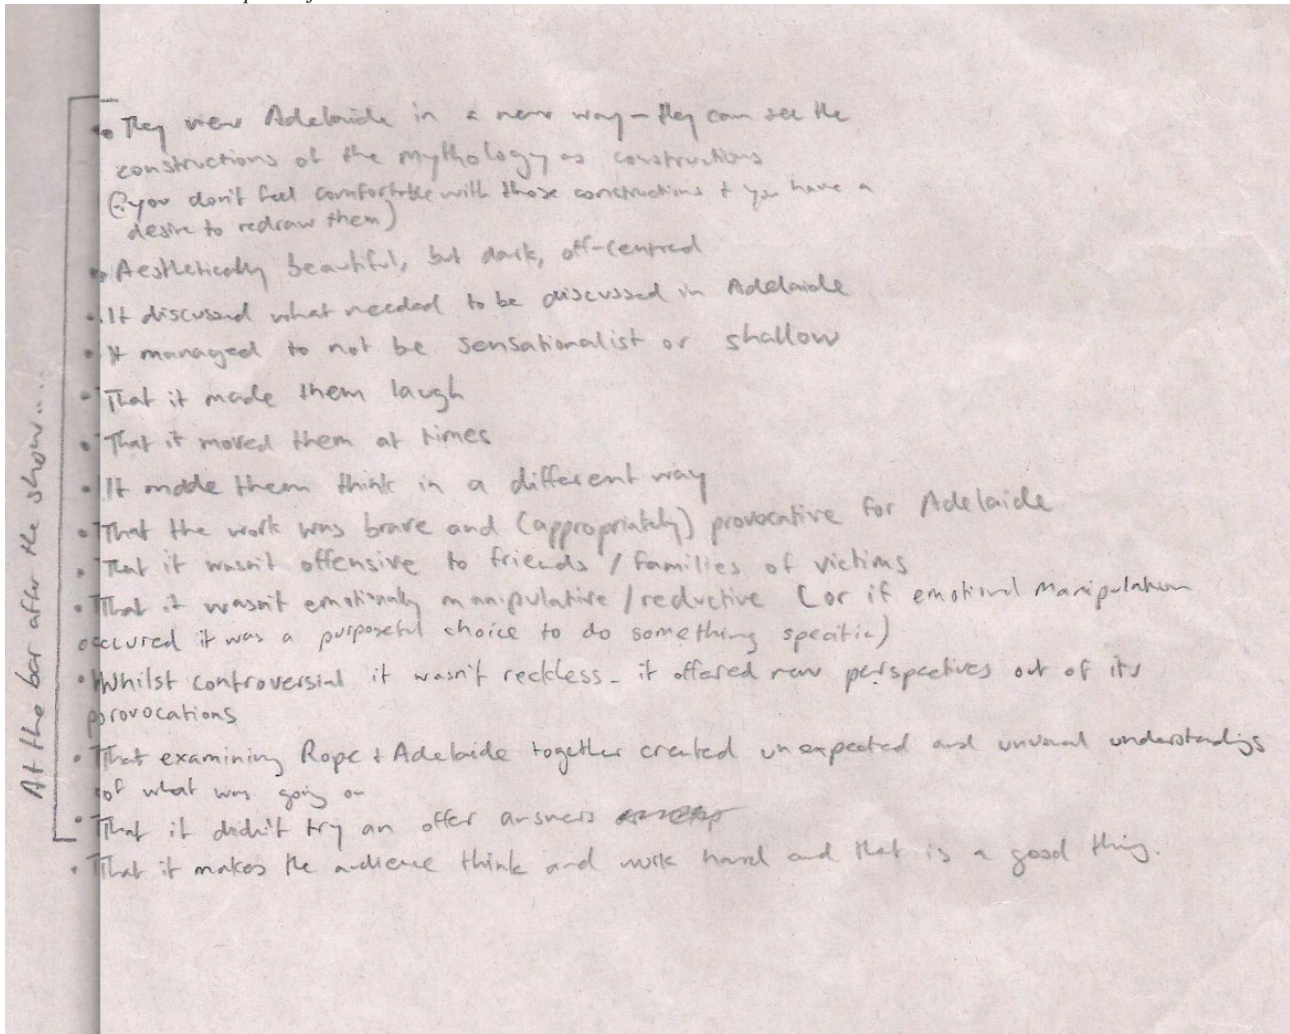 At the bar after the show...
• They view Adelaide in a new way - they can see the
constructions of the mythology as constructions
(? you don't feel comfortable with those constructions + you have a
desire to redraw them)
• Aesthetically beautiful, but dark, off-centred
• It discussed what needed to be discussed in Adelaide
• It managed to not be sensationalist or shallow
• That it made them laugh
• That it moved them at times
• It made them think in a different way
• That the work was brave and (appropriately) provocative for Adelaide
• That it wasn't offensive to friends / families of victims
• That it wasn't emotionally manipulative / reductive (or if emotional manipulation
occured it was a purposeful choice to do something specific)
• Whilst controversial it wasn't reckless - it offered new perspectives out of its
provocations
• That examining Rope + Adelaide together created unexpected and unusual understandings
of what was going on
• That it didn't try an offer answers
• That it makes the audience think and work hard and that is a good thing.